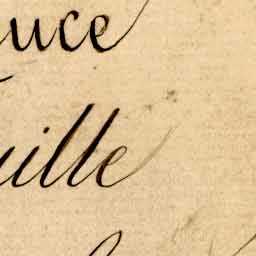 uce
uille